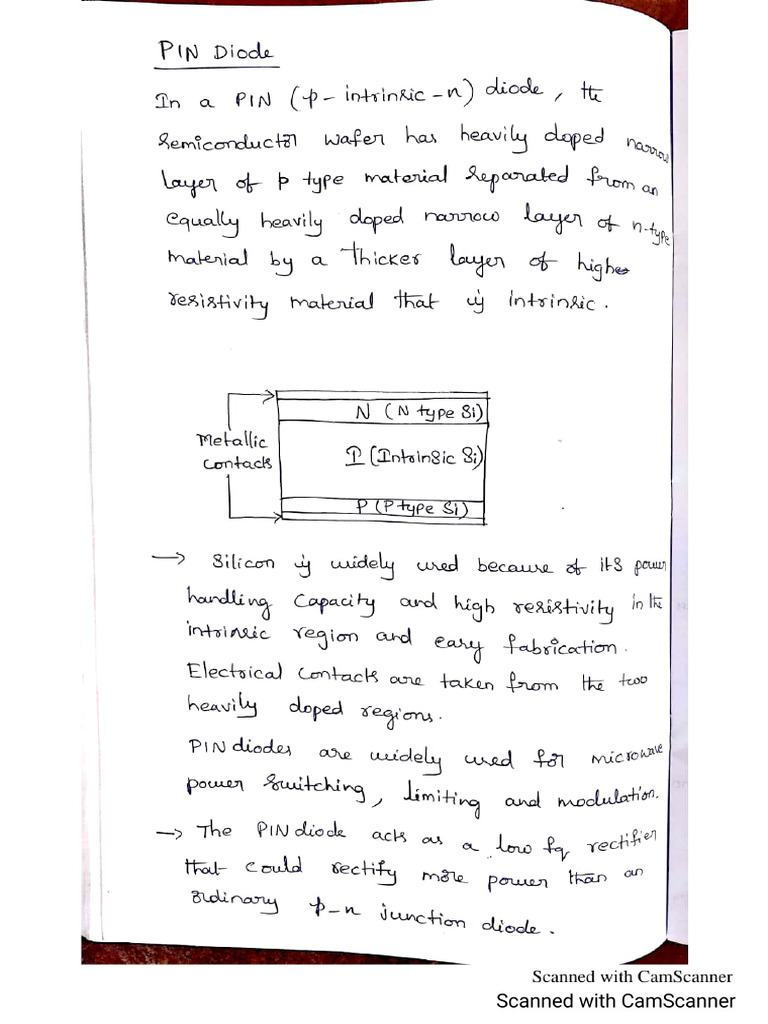 PIN Diode
In a PIN (p-intrinsic-n) diode, the
semiconductor wafer has heavily doped narrow
layer of p type material separated from an
equally heavily doped narrow layer of n-type
material by a thicker layer of higher
resistivity material that is intrinsic.
N (N type Si)
Metallic
contacts
I (Intrinsic Si)
P (P type Si)
→ Silicon is widely used because of its power
handling capacity and high resistivity in the
intrinsic region and easy fabrication.
Electrical contacts are taken from the two
heavily doped regions.
PIN diodes are widely used for microwave
power switching, limiting and modulation.
→ The PIN diode acts as a low fq rectifier
that could rectify more power than an
ordinary p-n junction diode.
Scanned with CamScanner
Scanned with CamScanner